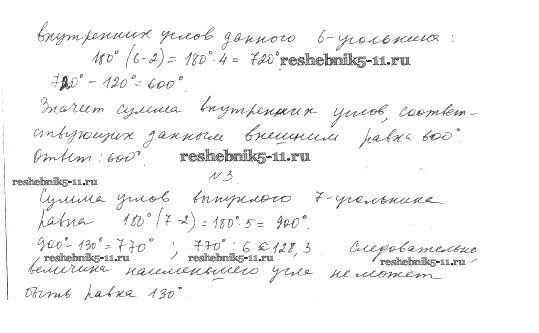 внутренних углов данного 6-угольника:
180° (6-2) = 180°·4 = 720° reshebnik5-11.ru
720° - 120° = 600°.
Значит сумма внутренних углов, соответ-
ствующих данным внешним равна 600°
Ответ: 600°. reshebnik5-11.ru
N3
reshebnik5-11.ru
Сумма углов выпуклого 7-угольника
равна 180°(7-2) = 180°·5 = 900°.
900°-130°=770° ; 770° : 6 ≈ 128,3 Следовательно,
reshebnik5-11.ru reshebnik5-11.ru reshebnik5-11.ru
величина наименьшего угла не может
быть равна 130°